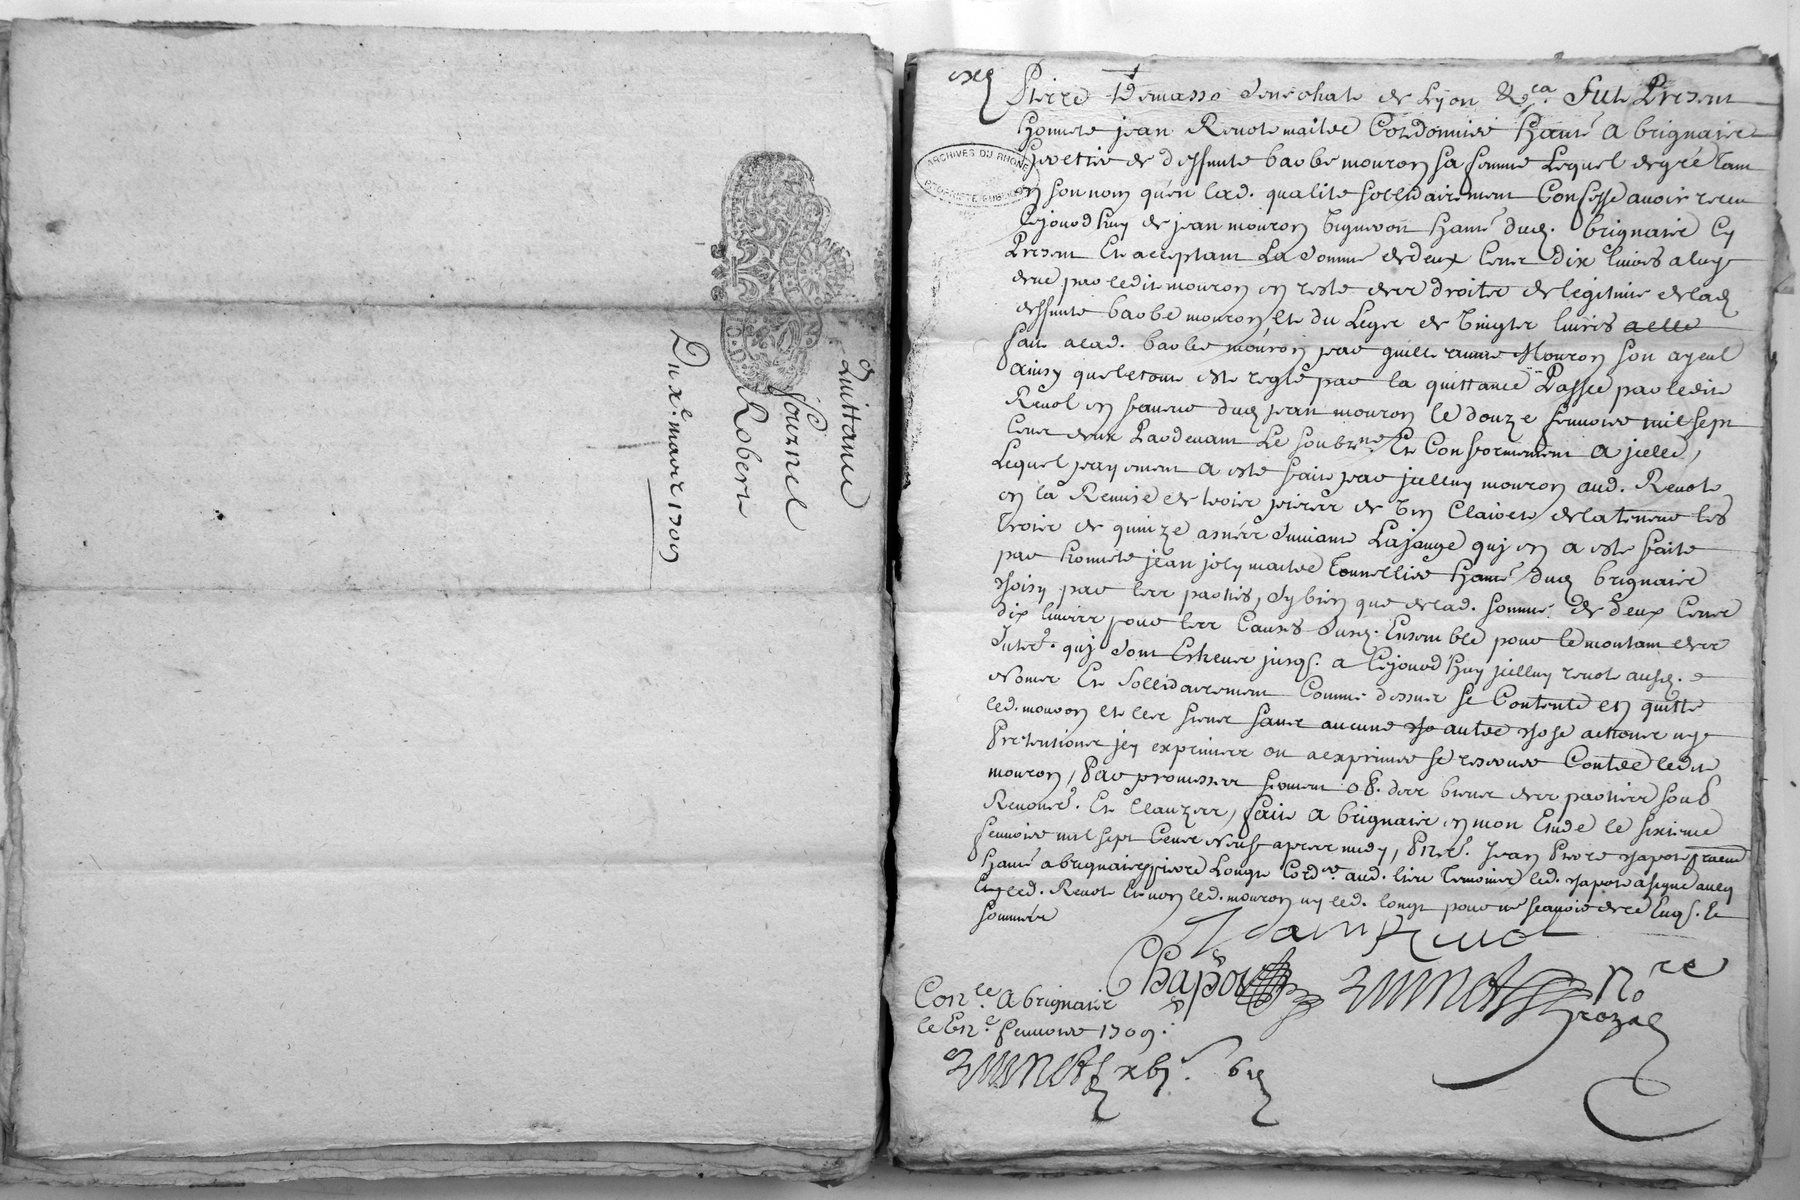 Quittance
Fournel
Robert
Du xe. mars 1709
ARCHIVES DU RHONE
Pierre Demasso Senechate de Lyon &ca. fut Present
honnete jean Revol maitre Cordonnier hant. a brignaire
de deffunte barbe mouron sa femme Lequel de gré tant
en son nom qu'en lad. qualite sollidairement Confesse avoir receu
Cejourdhuy de jean mouron vigneron hant. dud. brignaire Cy
Present Et acceptant La Somme de deux Cent dix livres a luy
deue par ledit mouron en reste des droits de legitime de lad
deffunte barbe mouron et du Legat de vingt livres
faite a lad. barbe mouron par Mouron son ayeul
ainsy que le tout este reglé par la quittance Passée par ledit
Revol en faveur dud jean mouron le douze fevrier mil sept
Cent deux Pardevant Le soubzne. Et Conformement a jcelle,
Lequel payement a este fait par jcelluy mouron aud. Revol
en la Remise de trois pieces de vin Clairet de la teneur les
trois de quinze asnées Suivant La jauge quj en a este faite
par honnete jean joly maitre tonnellier hant. dud brignaire
choisy par les parties, Sy bien que de lad. somme de deux Cent
dix livres pour les Causes Susd. Ensemble pour le montant des
Interets. quj sont Escheus jusqs. a Cejourdhuy jcelluy revol ausd.
Noms Et Sollidairement Comme dessus se Contente en quitte
led. mouron et les siens sans aucune autre chose actions ny
Pretentions jcy exprimés ou a exprimer se reserver Contre ledit
mouron, Par promesses serment ob. des biens des parties soub
Renonce. Et Clauzes, fait a brignaire en mon Etude le sixieme
fevrier mil sept Cent Neuf apres midy, Pnts. Jean Pierre chapot
hant. a brignaire, pierre Longe Cordr. aud. lieu temoins led. chapot a signe avec
led. Revol Et non led. mouron ny led. longe pour ne scavoir de ce Enqs. Et
sommés
Jean Revol
Chapot
Nore
Conlle. a brignaire
le fevrier 1709.